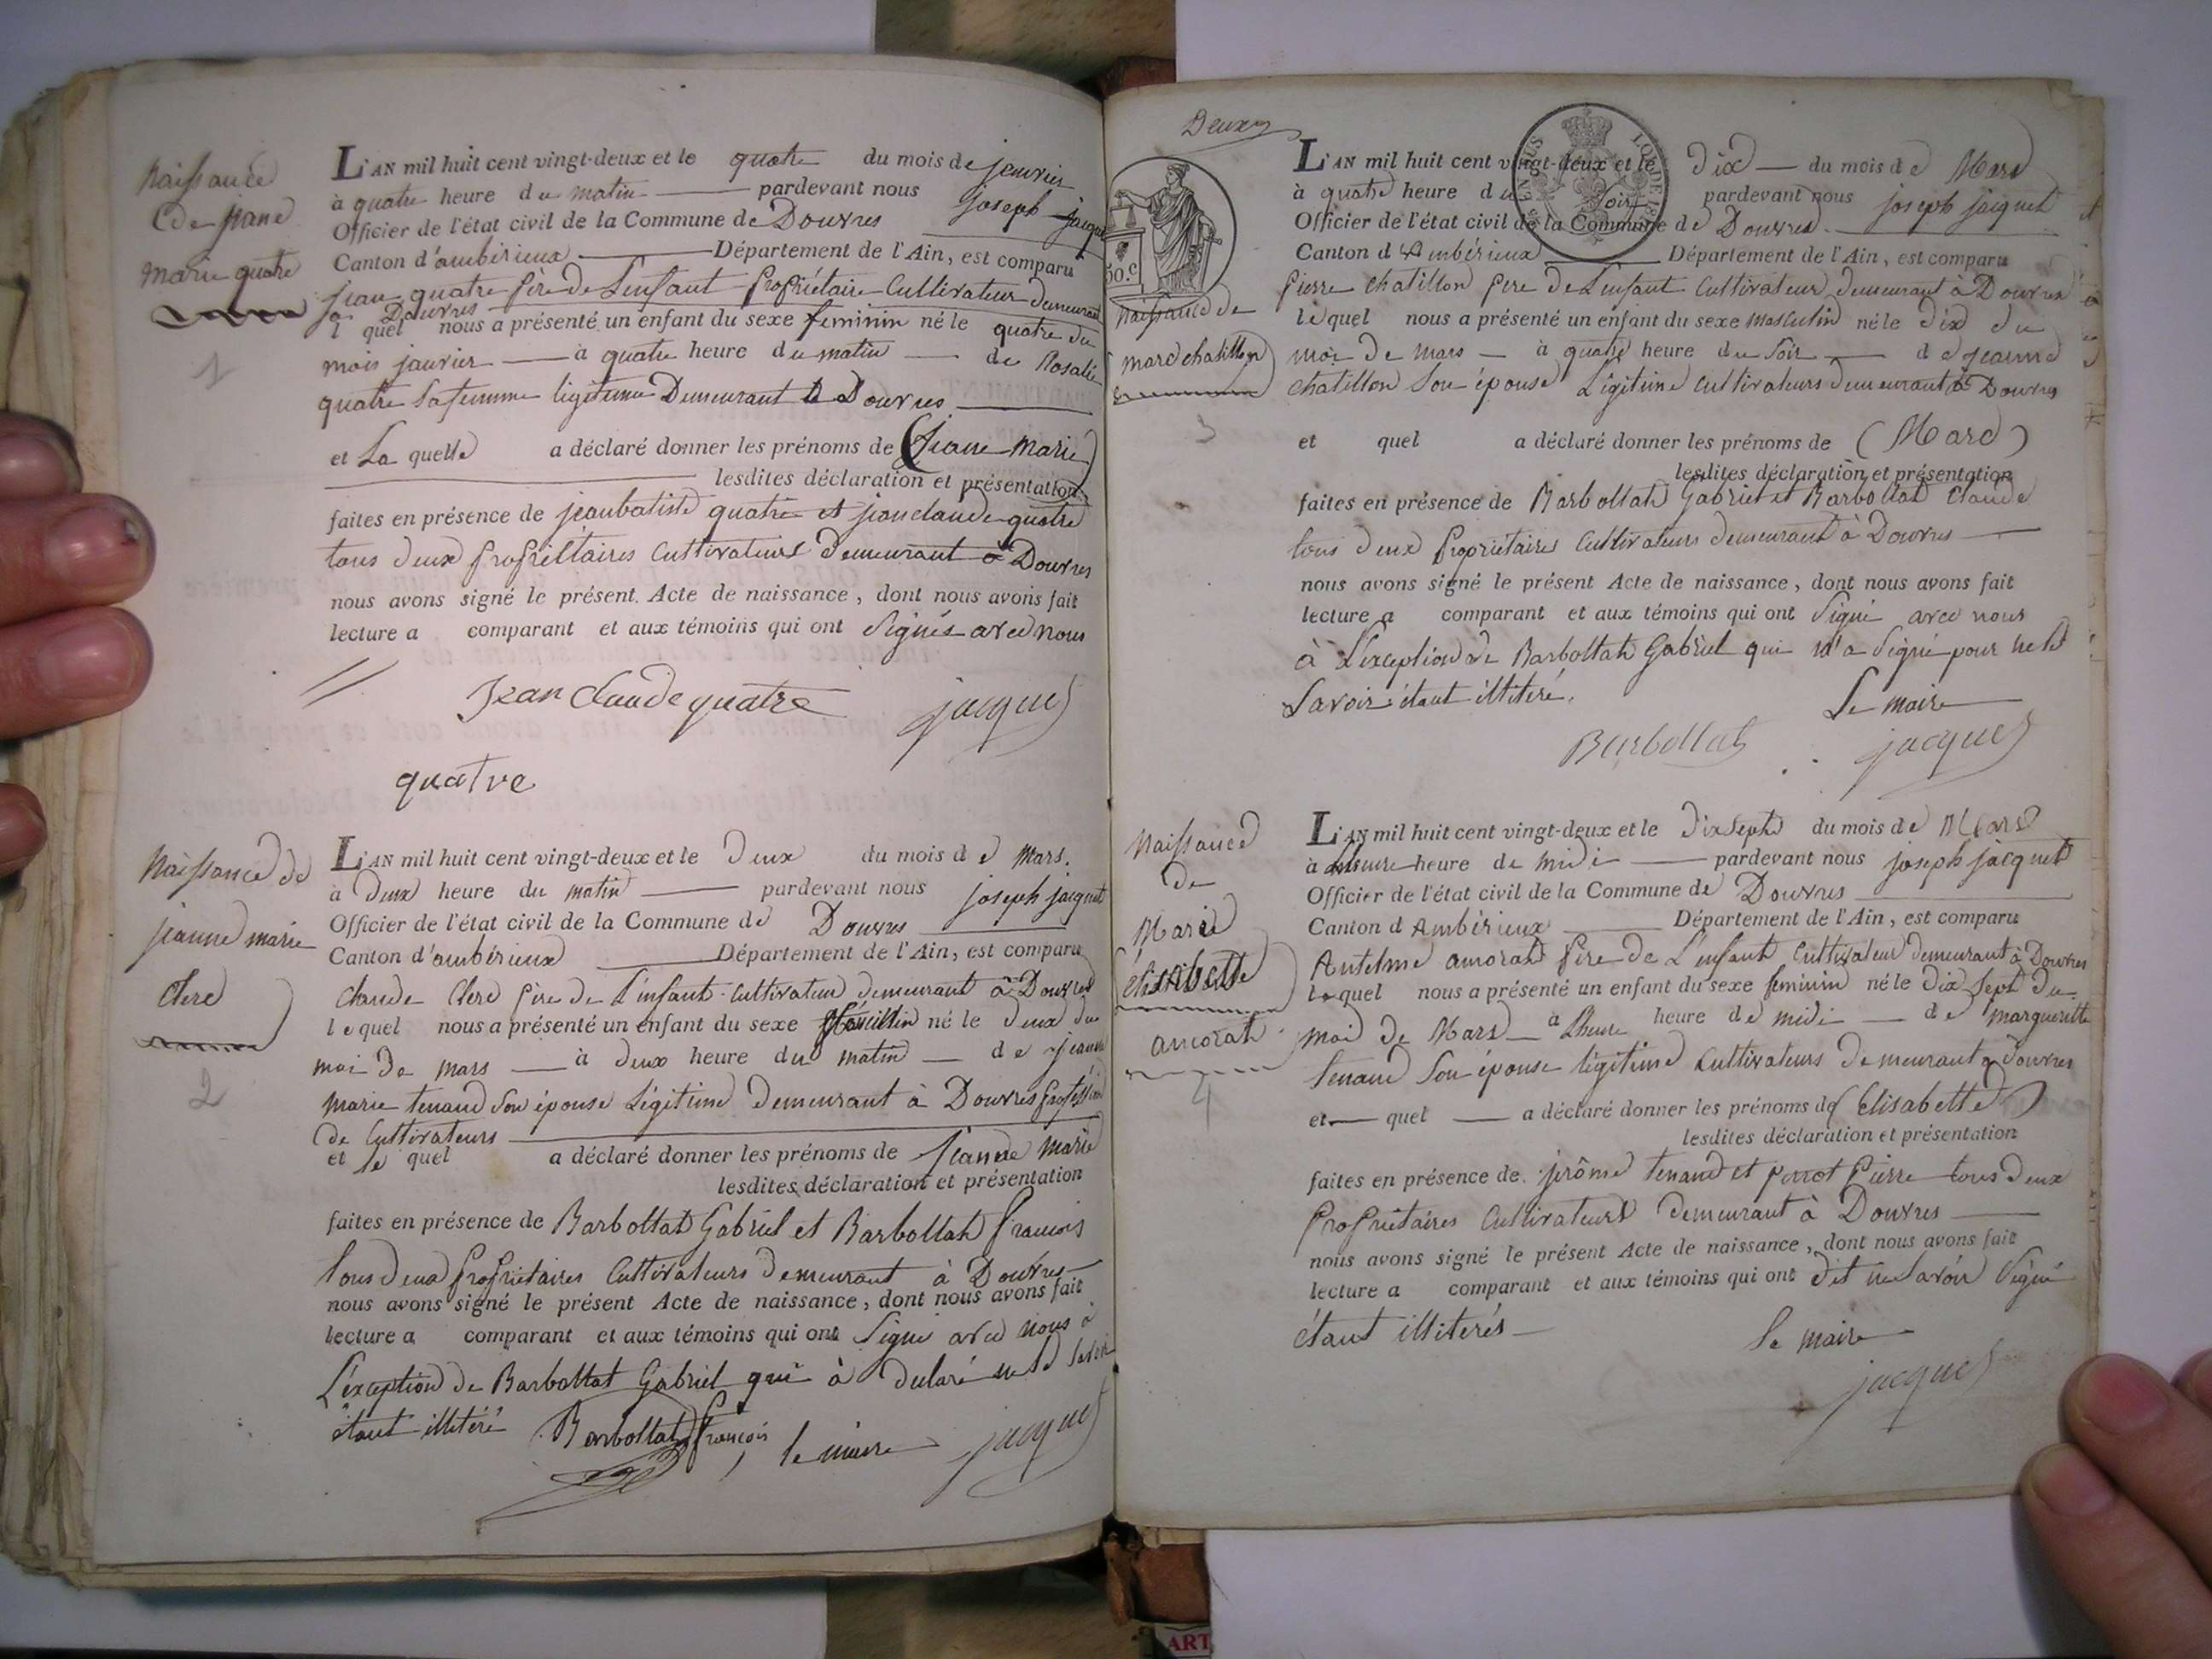 Naissance
de jeane
marie quatre
1
L'AN mil huit cent vingt-deux et le quatre du mois de jenvrier
à quatre heure du matin pardevant nous joseph jacquet
Officier de l'état civil de la Commune de Douvres
Canton d'ambérieux Département de l'Ain, est comparu
jean quatre père de L'enfant Propriétaire Cultivateur demeurant
à Douvres
l quel nous a présenté un enfant du sexe feminin né le quatre du
mois janvier à quatre heure du matin de Rosalie
quatre sa femme legitime Demeurant à Douvres
et La quelle a déclaré donner les prénoms de (jeane Marie)
lesdites déclaration et présentation
faites en présence de jeanbatiste quatre et jeanclaude quatre
tous deux propriétaires Cultivateurs demeurant à Douvres
nous avons signé le présent Acte de naissance, dont nous avons fait
lecture a comparant et aux témoins qui ont Signés avec nous
Jean Claude quatre jacquet
quatre
Naissance de
jeanne marie
Clerc
2
L'AN mil huit cent vingt-deux et le Deux du mois de Mars.
à Deux heure du matin pardevant nous joseph jacquet
Officier de l'état civil de la Commune de Douvres
Canton d'ambérieux Département de l'Ain, est comparu
Claude Clerc père de L'enfant Cultivateur demeurant à Douvres
lequel nous a présenté un enfant du sexe né le deux du
moi de mars à deux heure du matin de jeanne
marie tenand son épouse Légitime demeurant à Douvres profession
de Cultivateurs
et le quel a déclaré donner les prénoms de jeanne marie
lesdites déclaration et présentation
faites en présence de Barbollat Gabriel et Barbollat francois
tous deux propriétaires Cultivateurs demeurant à Douvres
nous avons signé le présent Acte de naissance, dont nous avons fait
lecture a comparant et aux témoins qui ont Signé avec nous à
L'exception de Barbollat Gabriel qui à declaré ne le savoir
étant illitéré Barbollat françois le maire jacquet
Deux
50.c
Naissance de
marc chatillon
3
L'AN mil huit cent vingt-deux et le Dix du mois de Mars
à quatre heure du Soir pardevant nous joseph jacquet
Officier de l'état civil de la Commune de Douvres
Canton d'Ambérieux Département de l'Ain, est comparu
pierre chatillon pere de L'enfant Cultivateur demeurant à Douvres
lequel nous a présenté un enfant du sexe masculin né le dix du
moi de mars à quatre heure du soir de jeanne
chatillon son épouse Légitime cultivateurs demeurant à Douvres
et quel a déclaré donner les prénoms de (Marc)
lesdites déclaration et présentation
faites en présence de Barbollat Gabriel et Barbollat Claude
tous deux propriétaires Cultivateurs demeurant à Douvres
nous avons signé le présent Acte de naissance, dont nous avons fait
lecture a comparant et aux témoins qui ont Signé avec nous
à L'exception de Barbollat Gabriel qui n'a Signé pour ne le
Savoir étant illiteré. Le maire
Barbollat jacquet
Naissance
de
Marie
elisabette
amorat
4
L'AN mil huit cent vingt-deux et le dixsept du mois de Mars
à heure de midi pardevant nous joseph jacquet
Officier de l'état civil de la Commune de Douvres
Canton d Ambérieux Département de l'Ain, est comparu
Antelme amorat père de L'enfant Cultivateur demeurant à Douvres
lequel nous a présenté un enfant du sexe feminin né le dix sept du
moi de Mars à Lheure heure de midi de margueritte
tenand son épouse légitime Cultivateurs demeurant a douvres
et quel a déclaré donner les prénoms de (Elisabette)
lesdites déclaration et présentation
faites en présence de jérôme tenand et perrot pierre tous deux
propriétaires Cultivateurs demeurant à Douvres
nous avons signé le présent Acte de naissance, dont nous avons fait
lecture a comparant et aux témoins qui ont dit ne savoir Signé
étant illiterés
Le maire
jacquet
ART